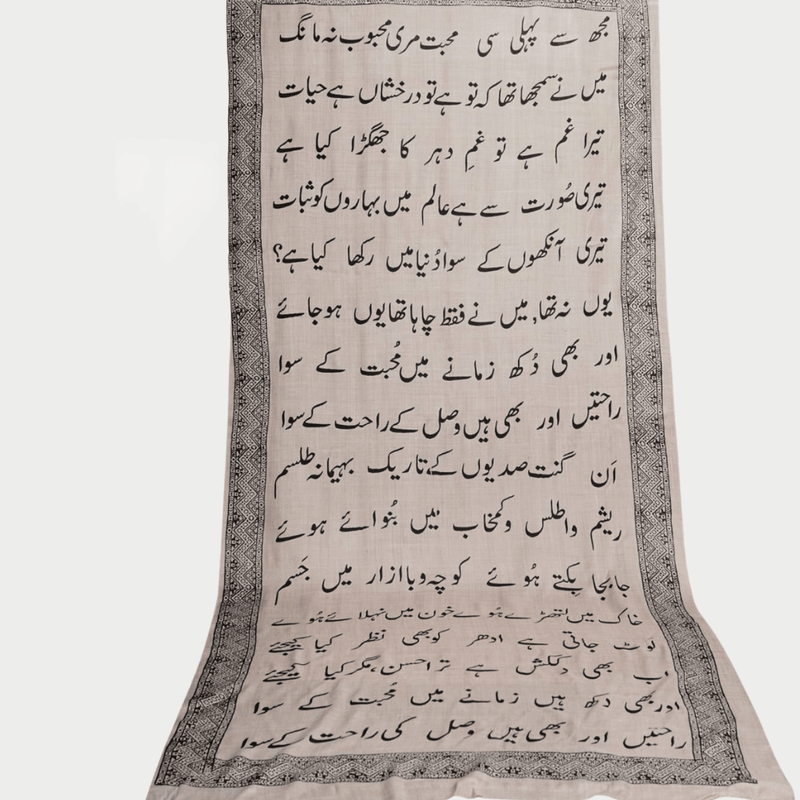 مجھ سے پہلی سی محبت مری محبوب نہ مانگ
میں نے سمجھا تھا کہ تو ہے تو درخشاں ہے حیات
تیرا غم ہے تو غمِ دہر کا جھگڑا کیا ہے
تیری صُورت سے ہے عالم میں بہاروں کو ثبات
تیری آنکھوں کے سوا دُنیا میں رکھا کیا ہے؟
یوں نہ تھا، میں نے فقط چاہا تھا یوں ہو جائے
اور بھی دُکھ زمانے میں مُحبت کے سوا
راحتیں اور بھی ہیں وصل کے راحت کے سوا
اَن گنت صدیوں کے تاریک بہیمانہ طلسم
ریشم و اطلس و کمخاب میں بُنوائے ہوئے
جا بجا بکتے ہُوئے کوچہ و باازار میں جَسم
خاک میں لتھڑے ہُوے خون میں نہلائے ہُوے
لوٹ جاتی ہے ادھر کو بھی نظر کیا کیجیے
اب بھی دلکش ہے ترا حسن، مگر کیا کیجیے
اور بھی دکھ ہیں زمانے میں مُحبت کے سوا
راحتیں اور بھی ہیں وصل کی راحت کے سوا